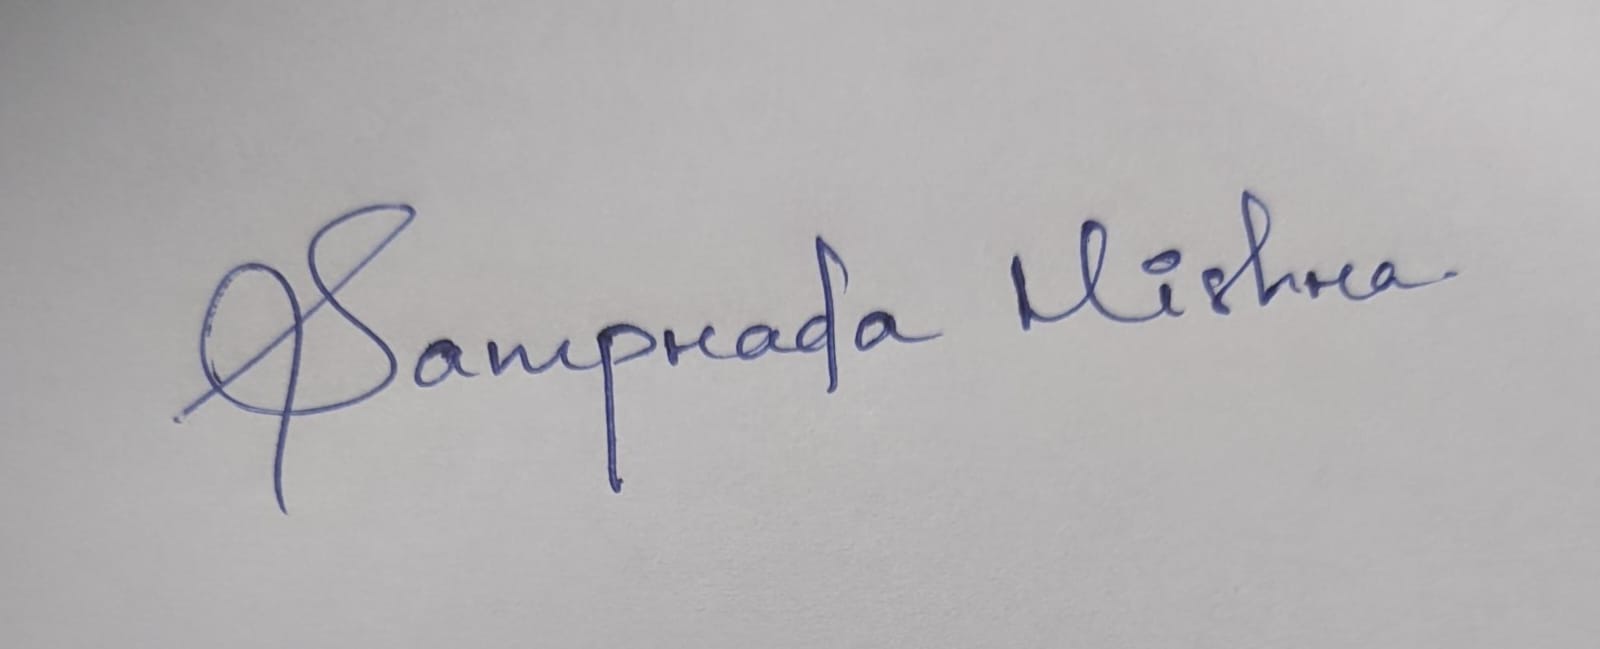 Samprada Mishra